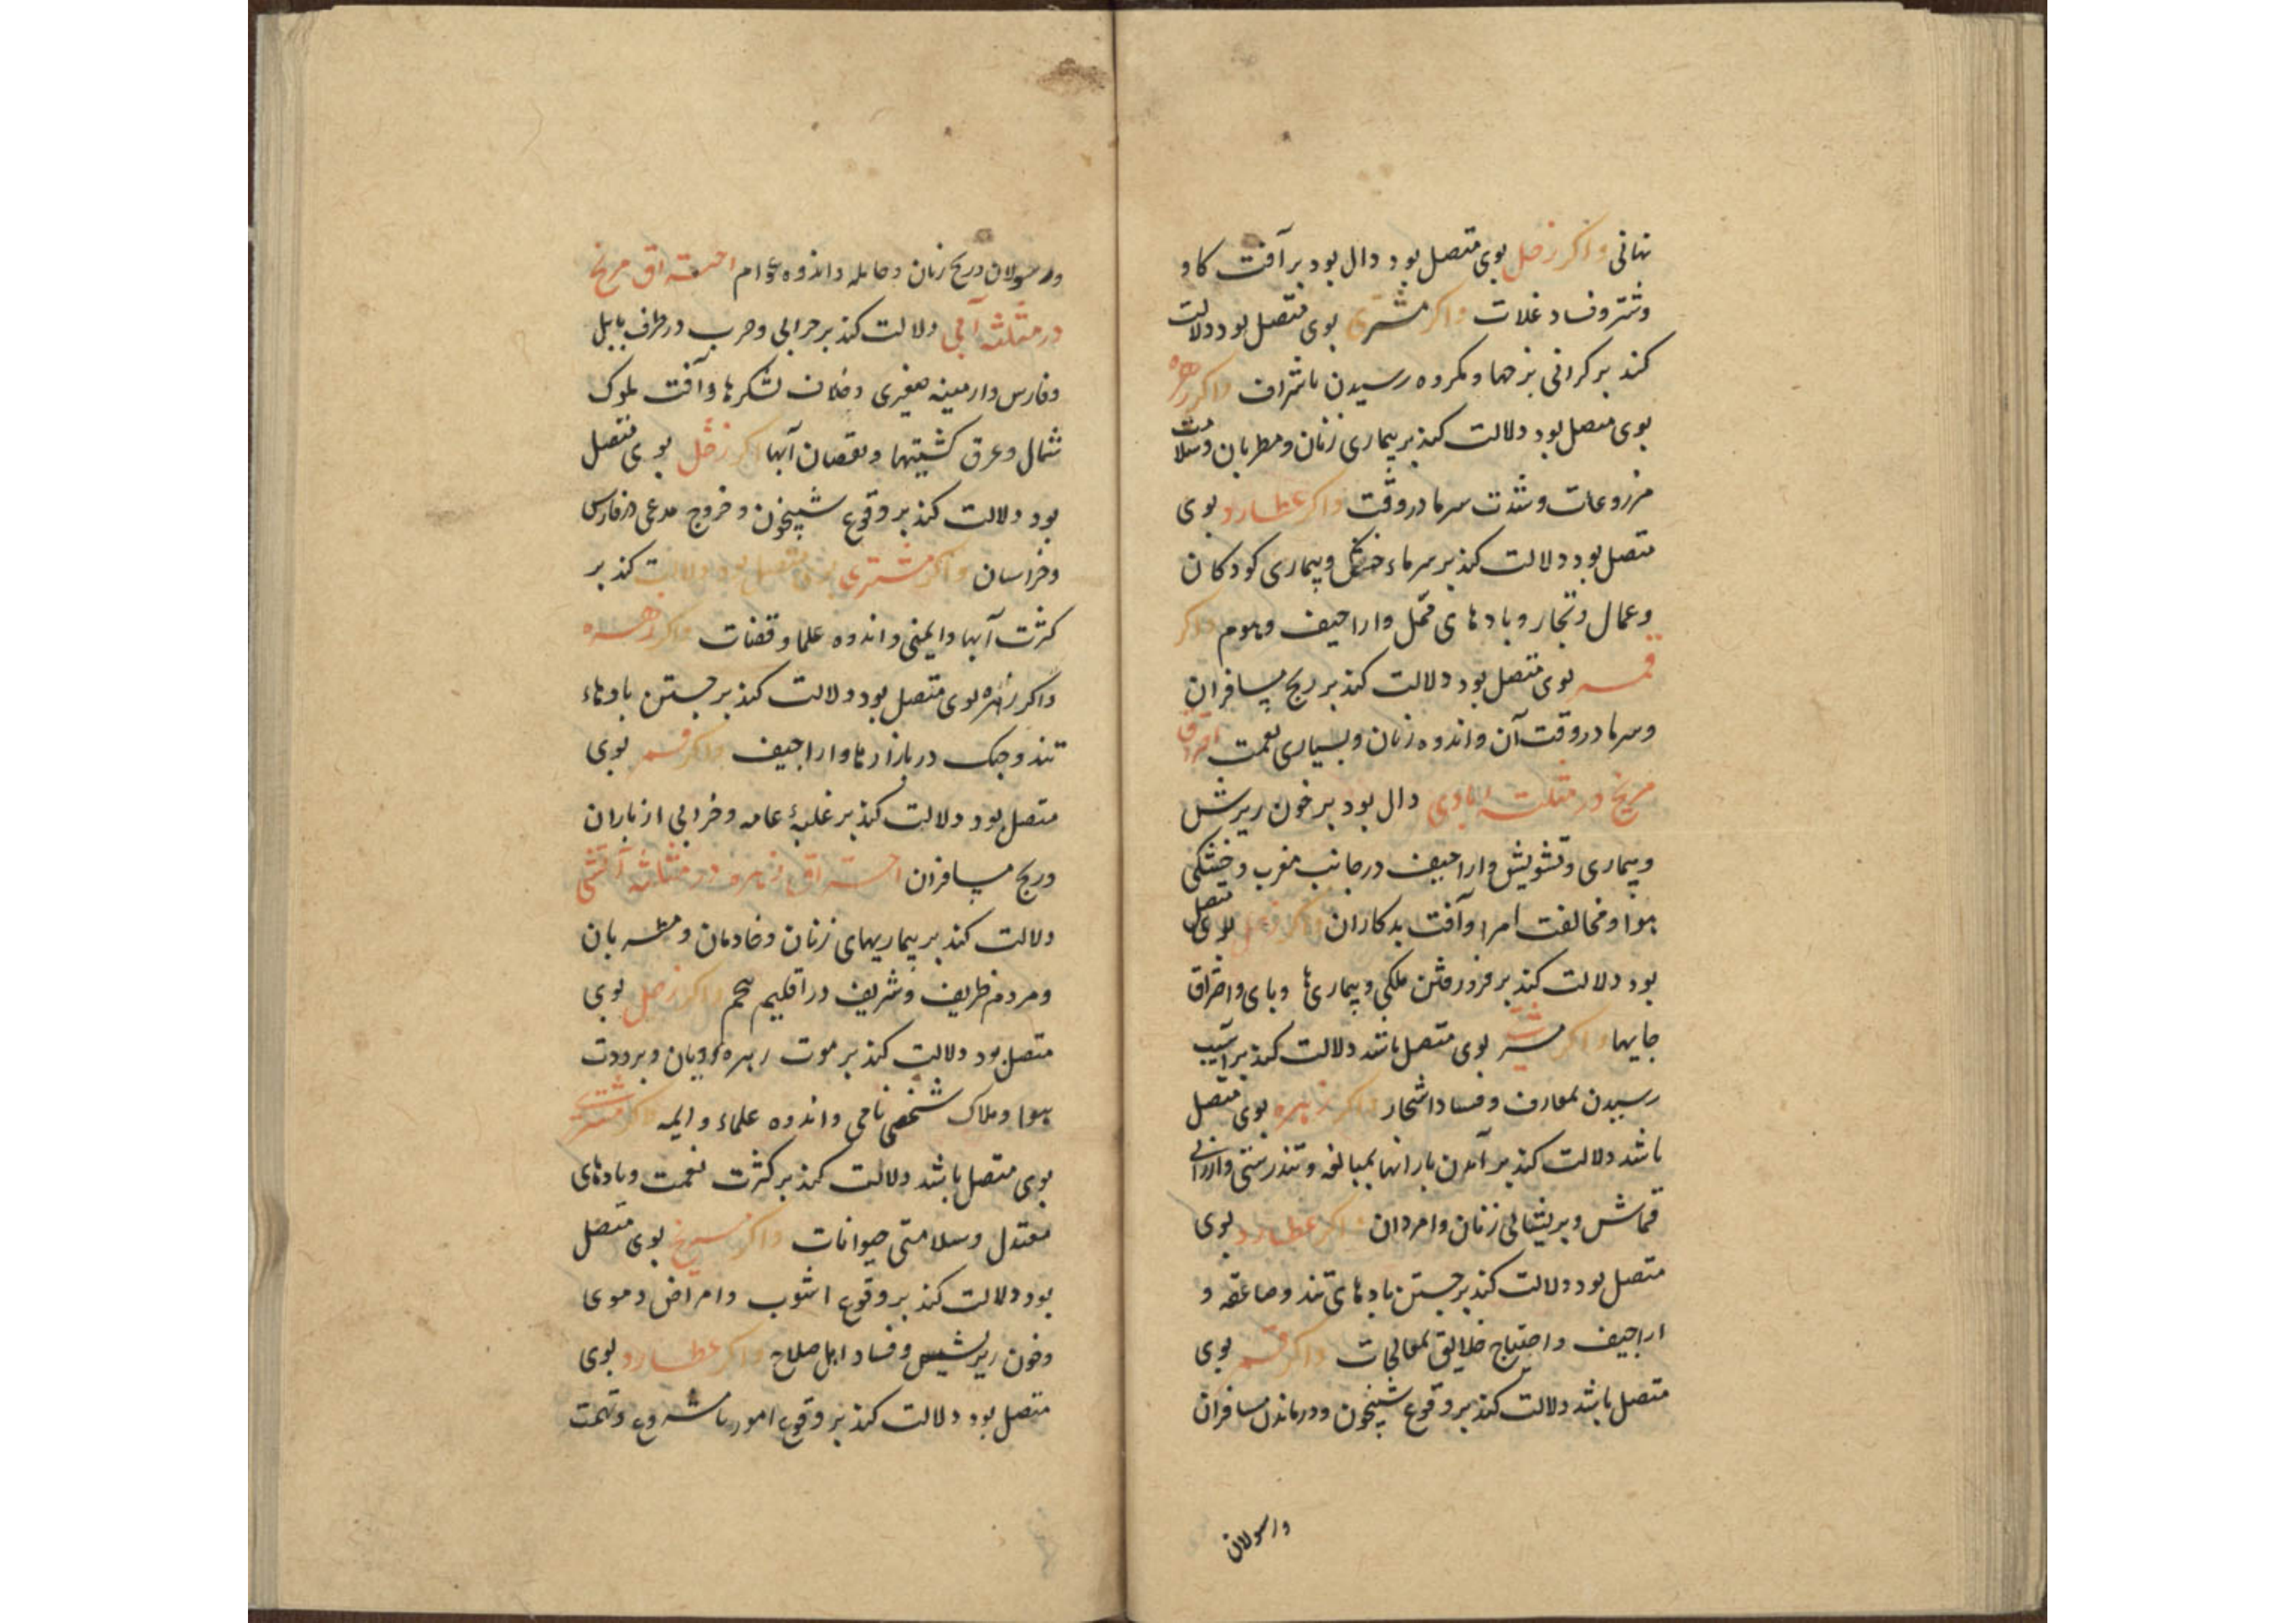 نهانی واکر زحل بوی متصل بود دال بود بر آفت کاو
وشتر وفساد غلات واکر مشتری بوی متصل بود دلالت
کند بر کرانی نرخها ومکروه رسیدن باشراف واکر زهره
بوی متصل بود دلالت کند بر بیماری زنان ومطربان وسلامت
مزروعات وشدت سرما در وقت واکر عطارد بوی
متصل بود دلالت کند بر سرماء خشک وبیماری کودکان
وعمال وتجار وبادهای واراجیف وهموم واکر
قمر بوی متصل بود دلالت کند بر رنج مسافران
وسرما در وقت آن واندوه زنان وبسیاری نعمت احتراق
مریخ در مثلثه بادی دال بود بر خون ریزش
وبیماری وتشویش واراجیف در جانب مغرب وخشکی
هوا ومخالفت امرا وآفت بدکاران واکر زحل بوی متصل
بود دلالت کند بر فرو رفتن ملکی وبیماریها وبای واحتراق
جایها واکر مشتری بوی متصل باشد دلالت کند بر آسیب
رسیدن بمعارف وفساد اشجار واکر زهره بوی متصل
باشد دلالت کند بر آمدن بارانها بمبالغه وتندرستی وارزانی
قماش وپریشانی زنان وامردان واکر عطارد بوی
متصل بود دلالت کند بر جستن بادهای تند وصاعقه و
اراجیف واحتیاج خلایق بمعالجات واکر قمر بوی
متصل باشد دلالت کند بر وقوع شبیخون ودرماندن مسافران
ورسولان
ورسولان ورنج زنان وحامله واندوه عوام احتراق مریخ
در مثلثه آبی دلالت کند بر خرابی وحرب در طرف بابل
وفارس وارمینه صغیری وخلاف لشکرها وآفت ملوک
شمال وغرق کشتیها ونقصان آبها اکر زحل بوی متصل
بود دلالت کند بر وقوع شبیخون وخروج مدعی در فارس
وخراسان واکر مشتری بوی متصل بود دلالت کند بر
کثرت آبها وایمنی واندوه علما وقضات واکر زهره
واکر زهره بوی متصل بود دلالت کند بر جستن بادهاء
تند وجنک در بازارها واراجیف واکر قمر بوی
متصل بود دلالت کند بر غلبهٔ عامه وخرابی از باران
ورنج مسافران احتراق زهره در مثلثه آتشی
دلالت کند بر بیماریهای زنان وخادمان ومطربان
ومردم ظریف وشریف در اقلیم پنجم واکر زحل بوی
متصل بود دلالت کند بر موت وبرودت
هوا وهلاک شخصی نامی واندوه علماء وایمه واکر مشتری
بوی متصل باشد دلالت کند بر کثرت نعمت وبادهای
معتدل وسلامتی حیوانات واکر مریخ بوی متصل
بود دلالت کند بر وقوع اشوب وامراض دموی
وخون ریزش وفساد اهل صلاح واکر عطارد بوی
متصل بود دلالت کند بر وقوع امور نامشروع وتهمت